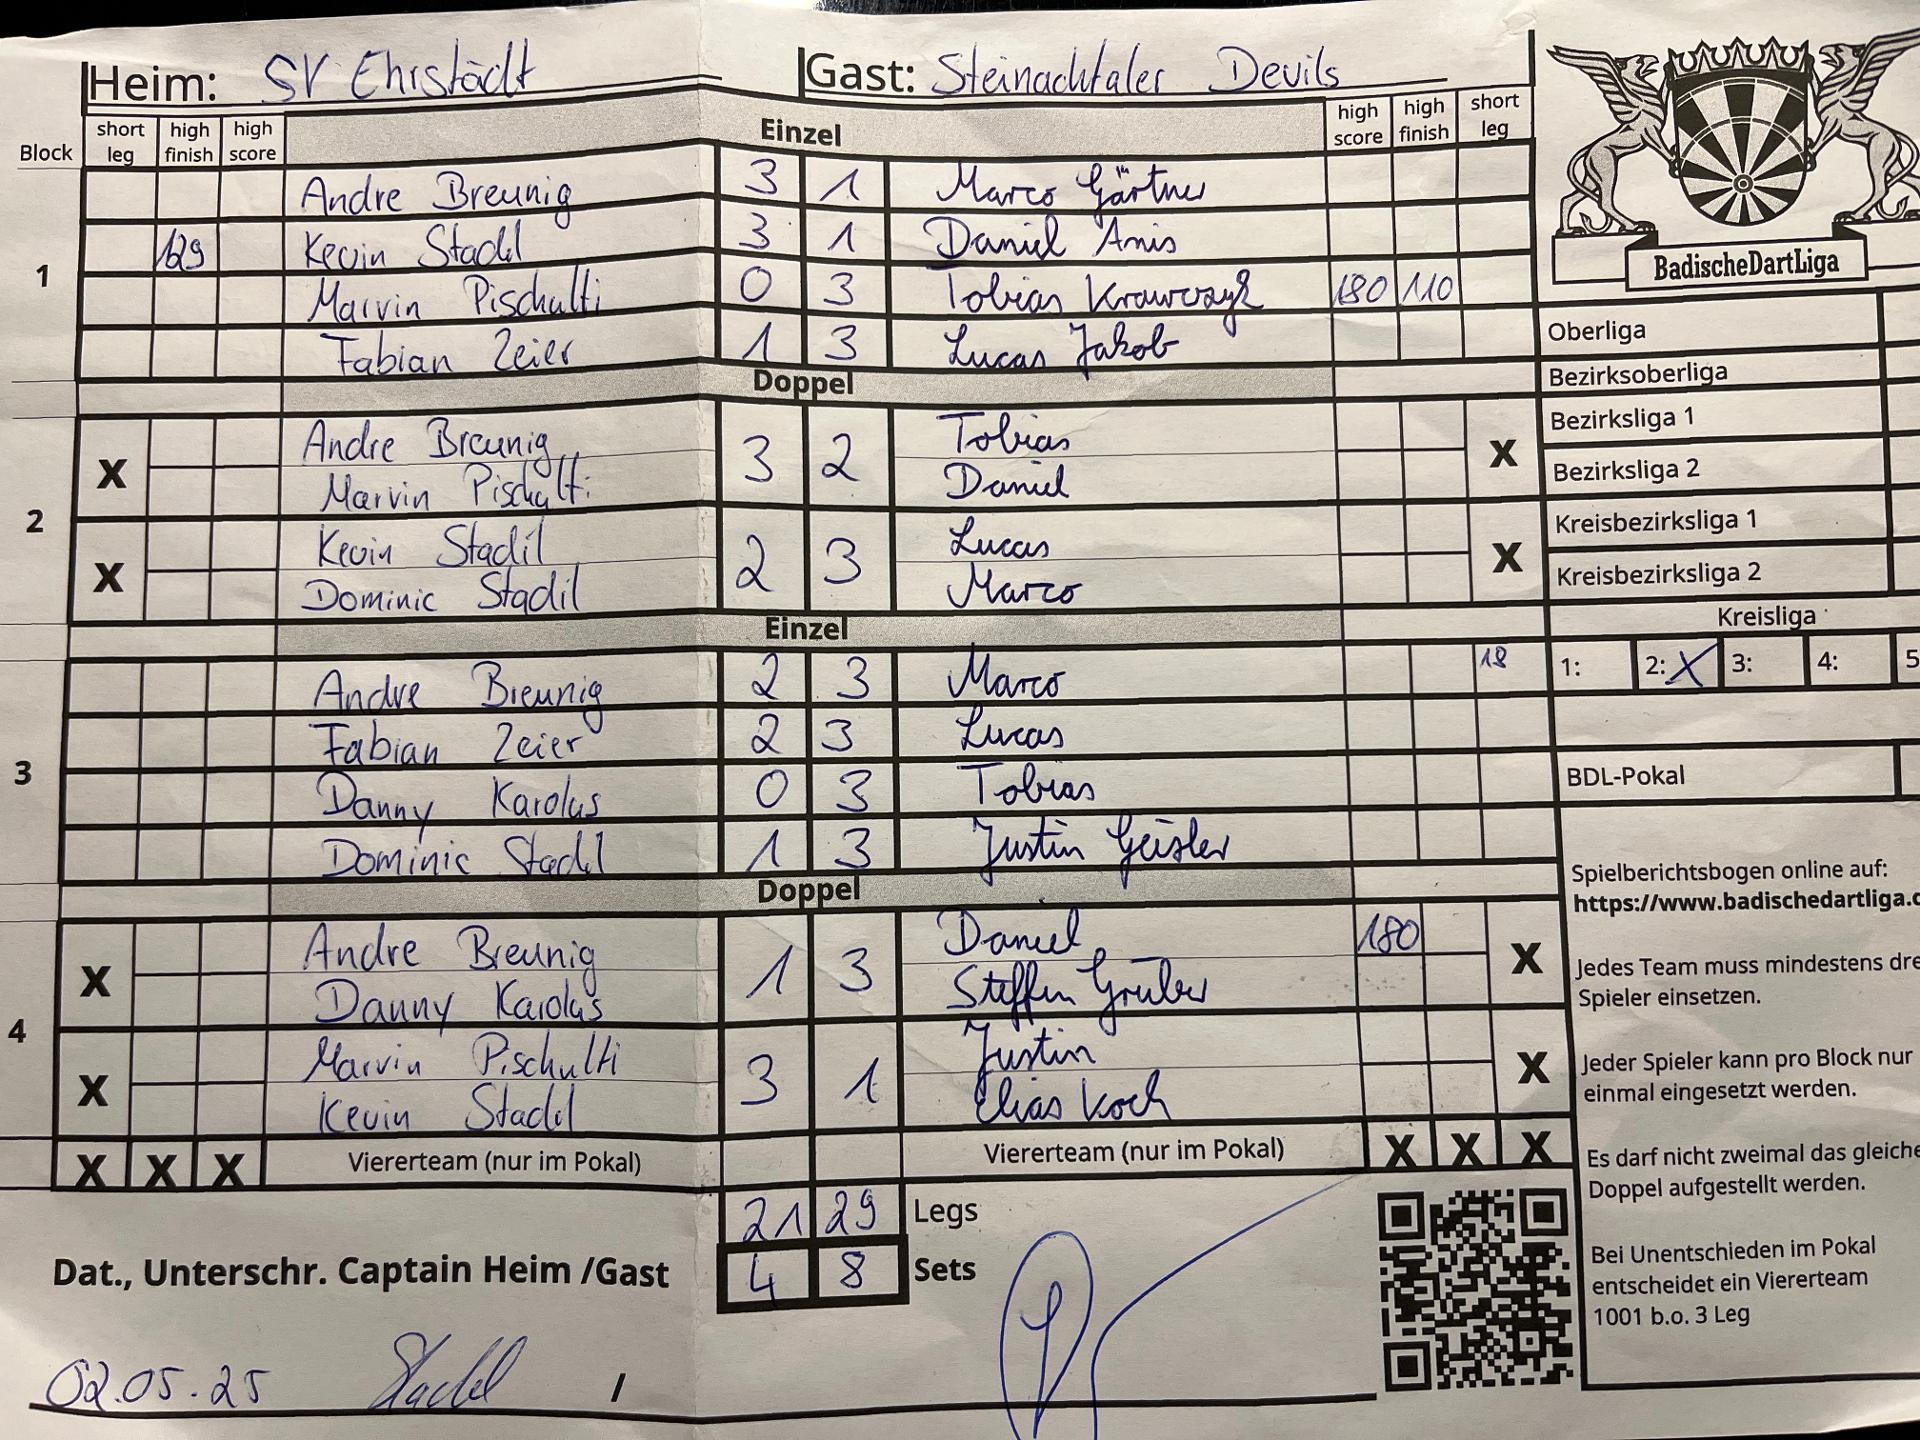 Heim: SV Ehrstädt Gast: Steinachtaler Devils
Block short leg high finish high score Einzel high score high finish short leg
1
Andre Breunig 3 1 Marco Gärtner
129 Kevin Stadil 3 1 Daniel Anis
Marvin Pischulti 0 3 Tobias Krawczyk 180 110
Fabian Zeier 1 3 Lucas Jakob
Doppel
2
X Andre Breunig 3 2 Tobias X
Marvin Pischulti Daniel
X Kevin Stadil 2 3 Lucas X
Dominic Stadil Marco
Einzel
3
Andre Breunig 2 3 Marco 18
Fabian Zeier 2 3 Lucas
Danny Karolus 0 3 Tobias
Dominic Stadil 1 3 Justin Geisler
Doppel
4
X Andre Breunig 1 3 Daniel 180 X
Danny Karolus Steffen Gruber
X Marvin Pischulti 3 1 Justin X
Kevin Stadil Elias Koch
X X X Viererteam (nur im Pokal) Viererteam (nur im Pokal) X X X
21 29 Legs
4 8 Sets
Dat., Unterschr. Captain Heim /Gast
02.05.25 Stadil /
BadischeDartLiga
Oberliga
Bezirksoberliga
Bezirksliga 1
Bezirksliga 2
Kreisbezirksliga 1
Kreisbezirksliga 2
Kreisliga
1: 2: X 3: 4: 5
BDL-Pokal
Spielberichtsbogen online auf:
https://www.badischedartliga.
Jedes Team muss mindestens dre
Spieler einsetzen.
Jeder Spieler kann pro Block nur
einmal eingesetzt werden.
Es darf nicht zweimal das gleiche
Doppel aufgestellt werden.
Bei Unentschieden im Pokal
entscheidet ein Viererteam
1001 b.o. 3 Leg